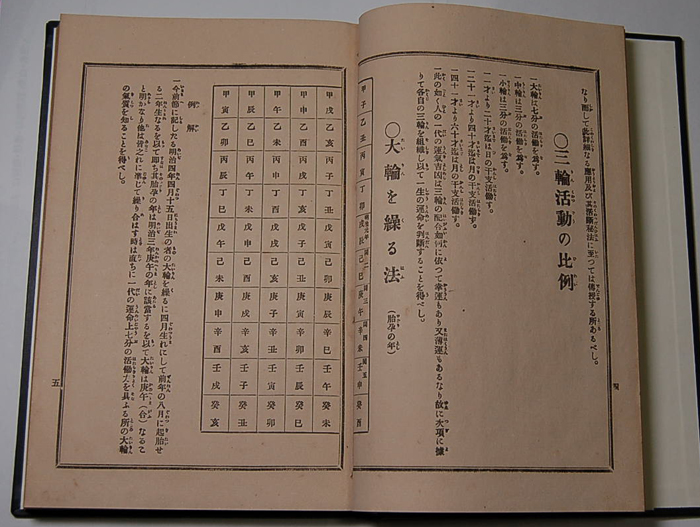 なり而して此詳細なる應用及び活斷秘法に至つては傳授する所あるべし。
○三輪活動の比例
一大輪は七分の活動を爲す。
一中輪は三分の活動を爲す。
一小輪は三分の活動を爲す。
一一才より二十才迄は日の干支活動す。
一二十一才より四十才迄は月の干支活動す。
一四十一才より六十才迄は月の干支活動す。
一此の如く人の一代の運氣吉凶は三輪の配合如何に依つて幸運もあり又薄運もあるなり故に次項に據
りて各自の三輪を組織し以て一生の運命を判斷することを得べし。
○大輪を繰る法 (胎孕の年)
甲子 乙丑 丙寅 丁卯 明治元年 戊辰 同二 己巳 同三 庚午 同四 辛未 同五 壬申 癸酉
四
甲戌 乙亥 丙子 丁丑 戊寅 己卯 庚辰 辛巳 壬午 癸未
甲申 乙酉 丙戌 丁亥 戊子 己丑 庚寅 辛卯 壬辰 癸巳
甲午 乙未 丙申 丁酉 戊戌 己亥 庚子 辛丑 壬寅 癸卯
甲辰 乙巳 丙午 丁未 戊申 己酉 庚戌 辛亥 壬子 癸丑
甲寅 乙卯 丙辰 丁巳 戊午 己未 庚申 辛酉 壬戌 癸亥
例解
一今前節に記したる明治四年四月十五日出生の者の大輪を繰るに四月生れにして前年の八月に起胎せ
る二年生なるを以て即ち其胎孕の年は明治三年庚午の年に該當するを以て大輪は庚午(合)なるこ
と明かなり他は皆之れに準じて繰り合はす時は直ちに一代の運命上七分の活動力を具ふる所の大輪
の氣質を知ることを得べし。
五